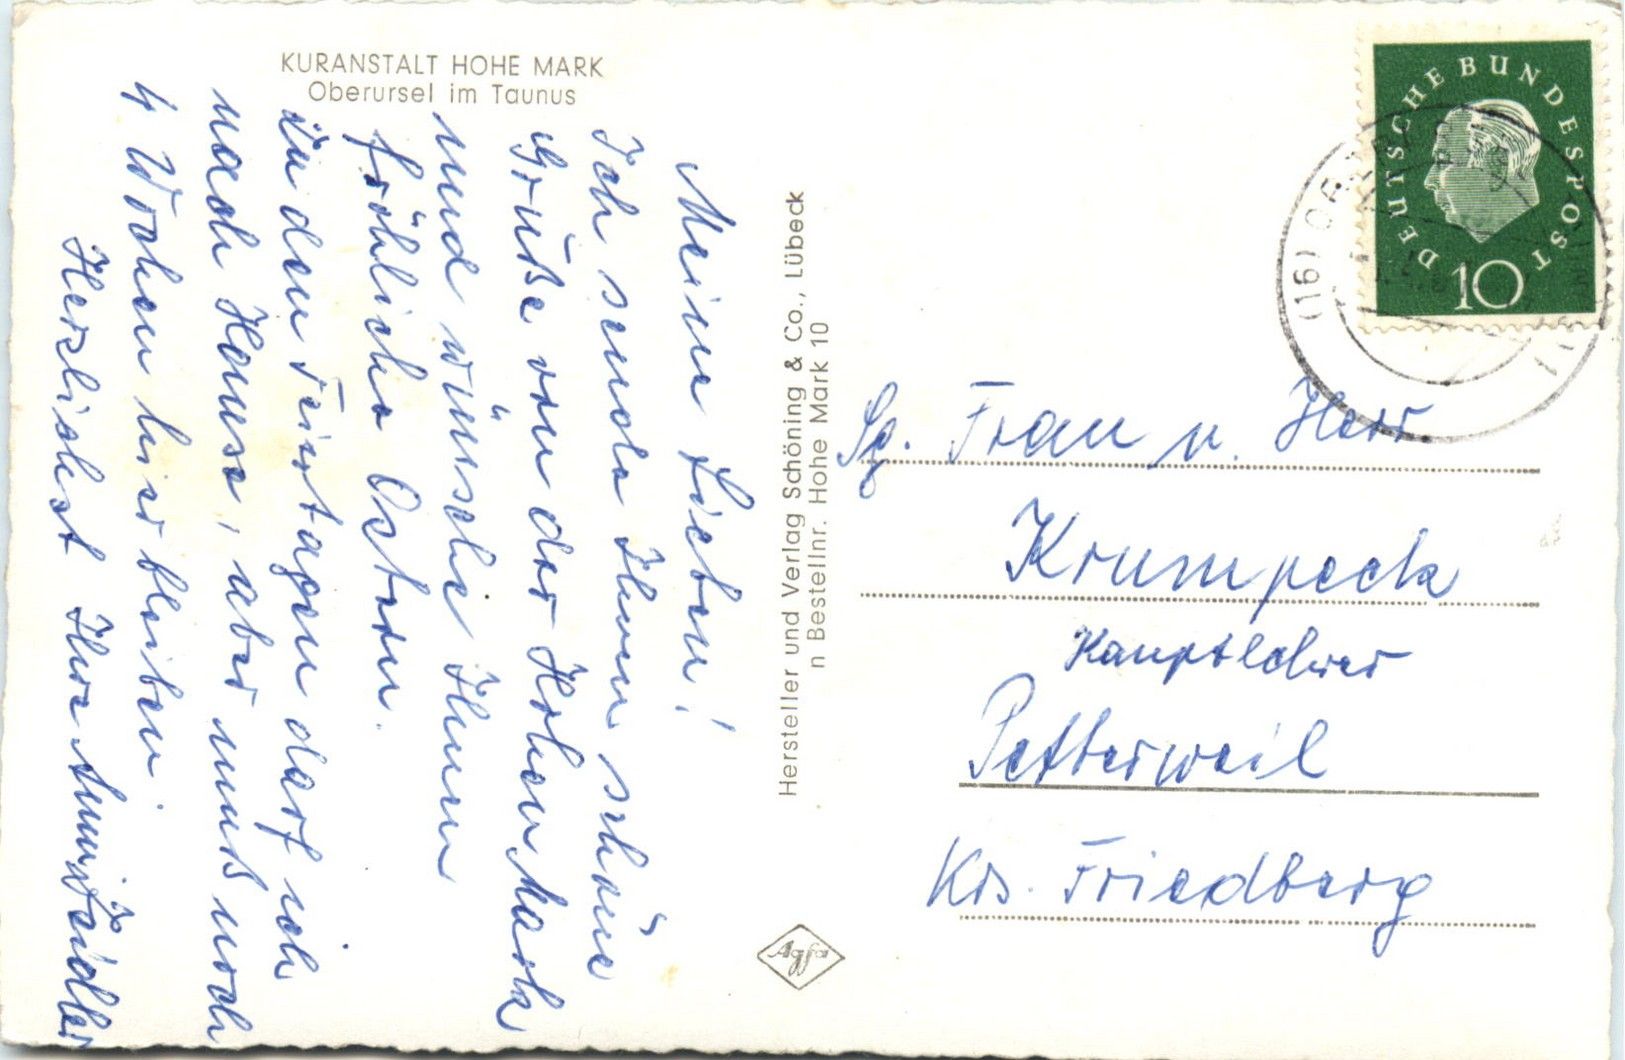 KURANSTALT HOHE MARK
Oberursel im Taunus
Meine Lieben!
Ich sende Ihnen schöne
Grüße von der Hohen Mark
und wünsche Ihnen
fröhliche Ostern.
Zu den Feiertagen darf ich
nach Hause, aber muß noch
4 Wochen hier bleiben
Herzlichst Ihre
Hersteller und Verlag Schöning & Co., Lübeck
n Bestellnr. Hohe Mark 10
Agfa
DEUTSCHE BUNDESPOST
10
(16)
Frau u. Herr
Krumpeck
Hauptlehrer
Petterweil
Krs. Friedberg